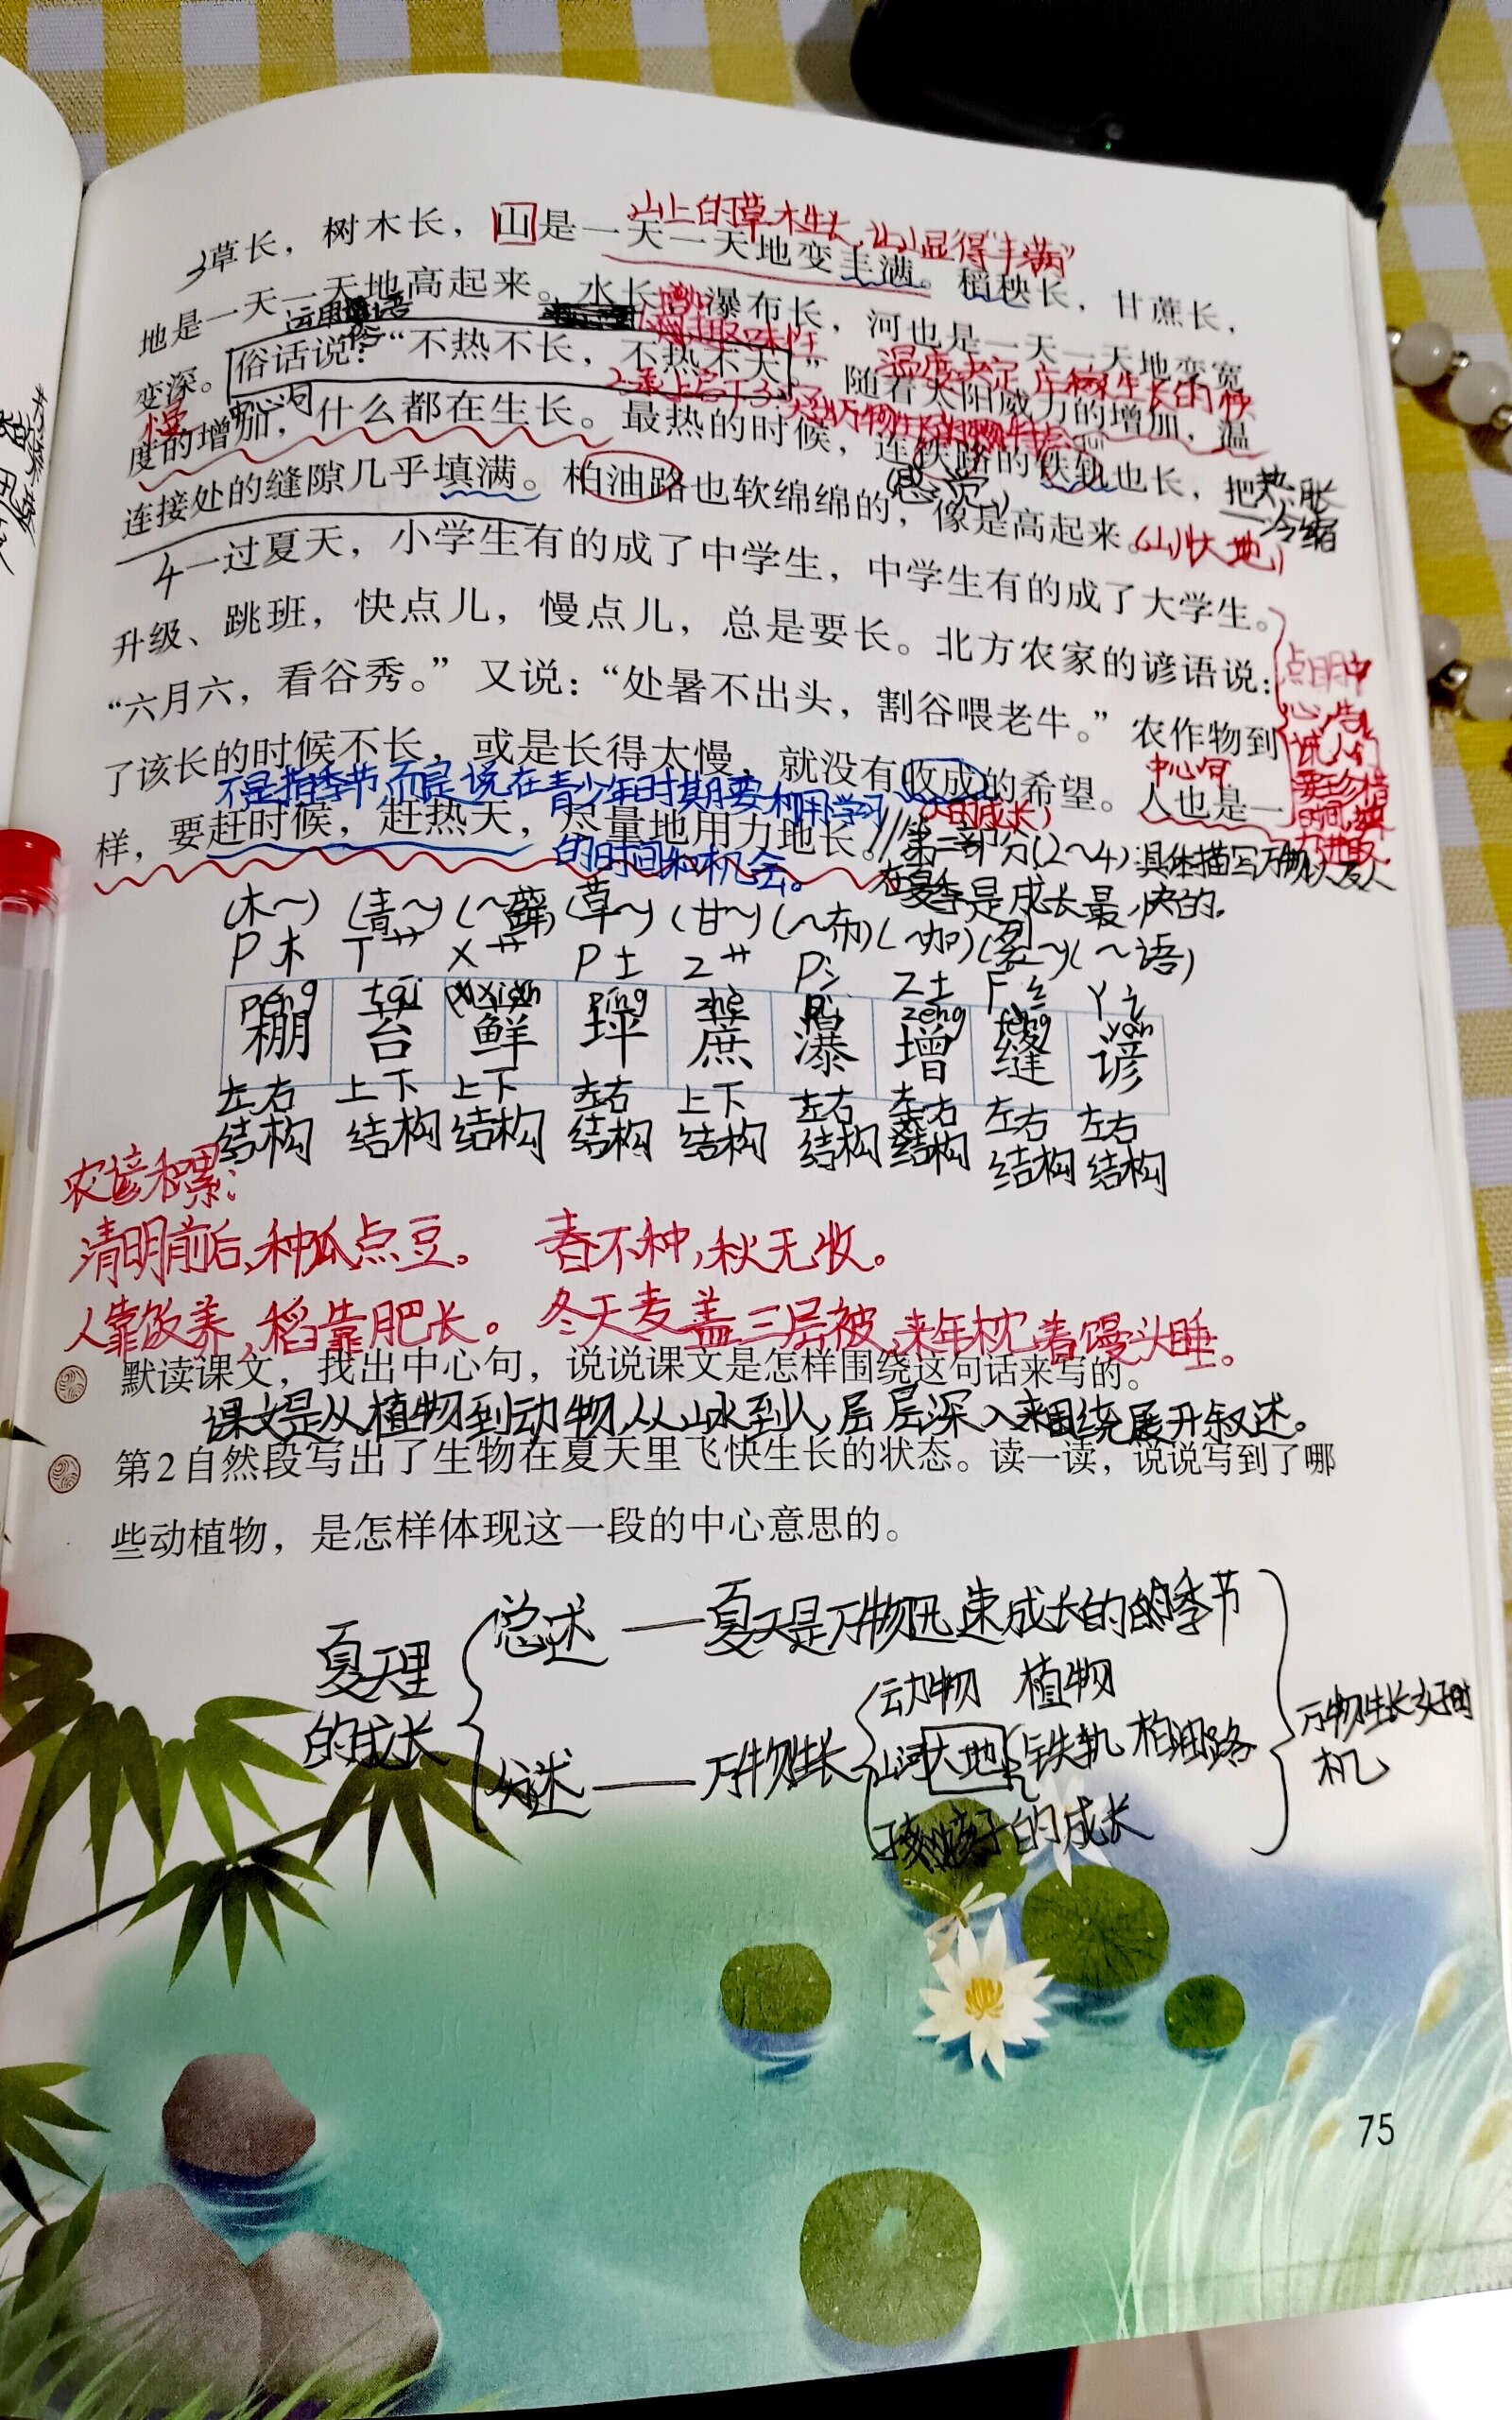 山上的草木生长,让山显得“丰满”
3草长，树木长，山是一天一天地变丰满。稻秧长，甘蔗长，
地是一天一天地高起来。水长，瀑布长，河也是一天一天地变宽
变深。俗话说：“不热不长，不热不大。”随着太阳威力的增加，温
中心句
度的增加，什么都在生长。最热的时候，连铁路的铁轨也长，把
热胀
冷缩
(感觉)
连接处的缝隙几乎填满。柏油路也软绵绵的，像是高起来。
(山川大地)
4一过夏天，小学生有的成了中学生，中学生有的成了大学生。
升级、跳班，快点儿，慢点儿，总是要长。北方农家的谚语说：
“六月六，看谷秀。”又说：“处暑不出头，割谷喂老牛。”农作物到
了该长的时候不长，或是长得太慢，就没有收成的希望。人也是一
中心句
不是指季节而是说在青少年时期要利用学习
的时间和机会。
样，要赶时候，赶热天，尽量地用力地长。
//第二部分(2~4):具体描写万物以及人
在夏季是成长最快的。
(木~) (青~) (~藓) (草~) (甘~) (~布) (~加) (裂~) (~语)
P木 T艹 X艹 P土 Z艹 P氵 Z土 F纟 Y讠
péng tái xiǎn píng zhè zēng fèng yàn
棚 苔 鲜 坪 蔗 瀑 增 缝 谚
左右 上下 上下 左右 上下 左右 左右 左右 左右
结构 结构 结构 结构 结构 结构 结构 结构 结构
农谚积累:
清明前后,种瓜点豆。 春不种,秋无收。
人靠饭养,稻靠肥长。 冬天麦盖三层被,来年枕着馒头睡。
默读课文，找出中心句，说说课文是怎样围绕这句话来写的。
课文是从植物到动物,从山水到人,层层深入来围绕展开叙述。
第2自然段写出了生物在夏天里飞快生长的状态。读一读，说说写到了哪
些动植物，是怎样体现这一段的中心意思的。
夏天里
的成长
总述 — 夏天是万物迅速成长的的季节
动物 植物
分述 — 万物生长
山河大地 铁轨 柏油路
孩子的成长
万物生长好时
机
75